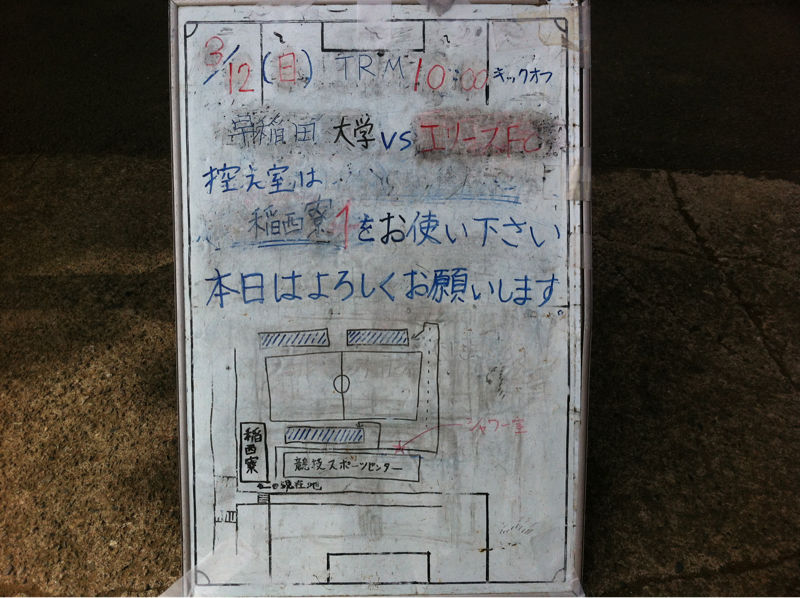 3/12 (日) TRM 10:00 キックオフ
早稲田 大学 vs エリースFC
控え室は
稲西寮1をお使い下さい
本日はよろしくお願いします。
シャワー室
稲西寮
競技スポーツセンター
現在地